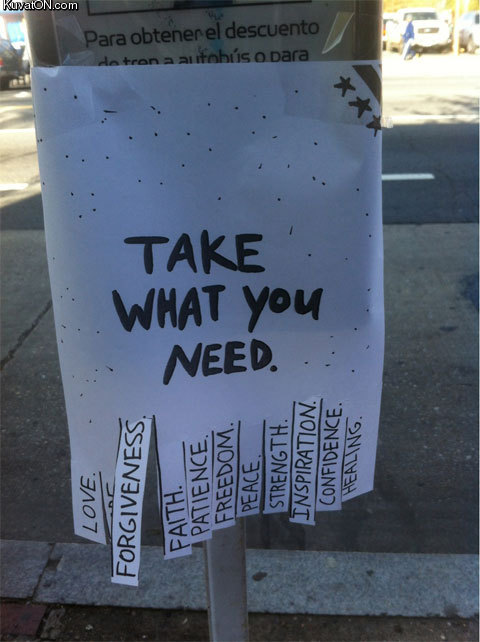 KuvatON.com
Para obtener el descuento
de tren a autobús o para
TAKE
WHAT YOU
NEED.
LOVE.
FORGIVENESS.
FAITH.
PATIENCE.
FREEDOM.
PEACE.
STRENGTH.
INSPIRATION.
CONFIDENCE.
HEALING.